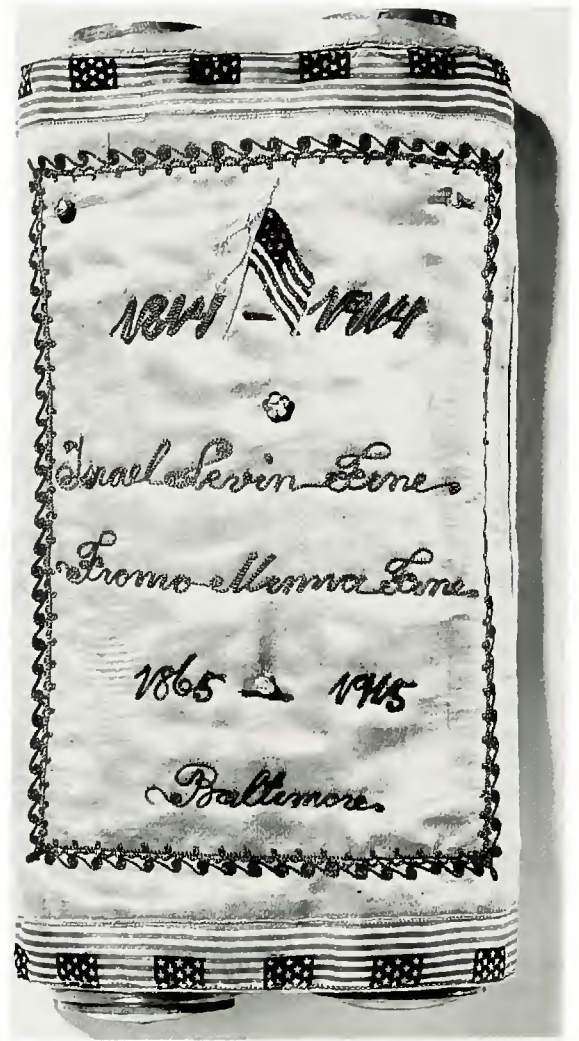 1814 - 1914
Israel Levin Fine
Fromo Minna Fine
1865 - 1915
Baltimore